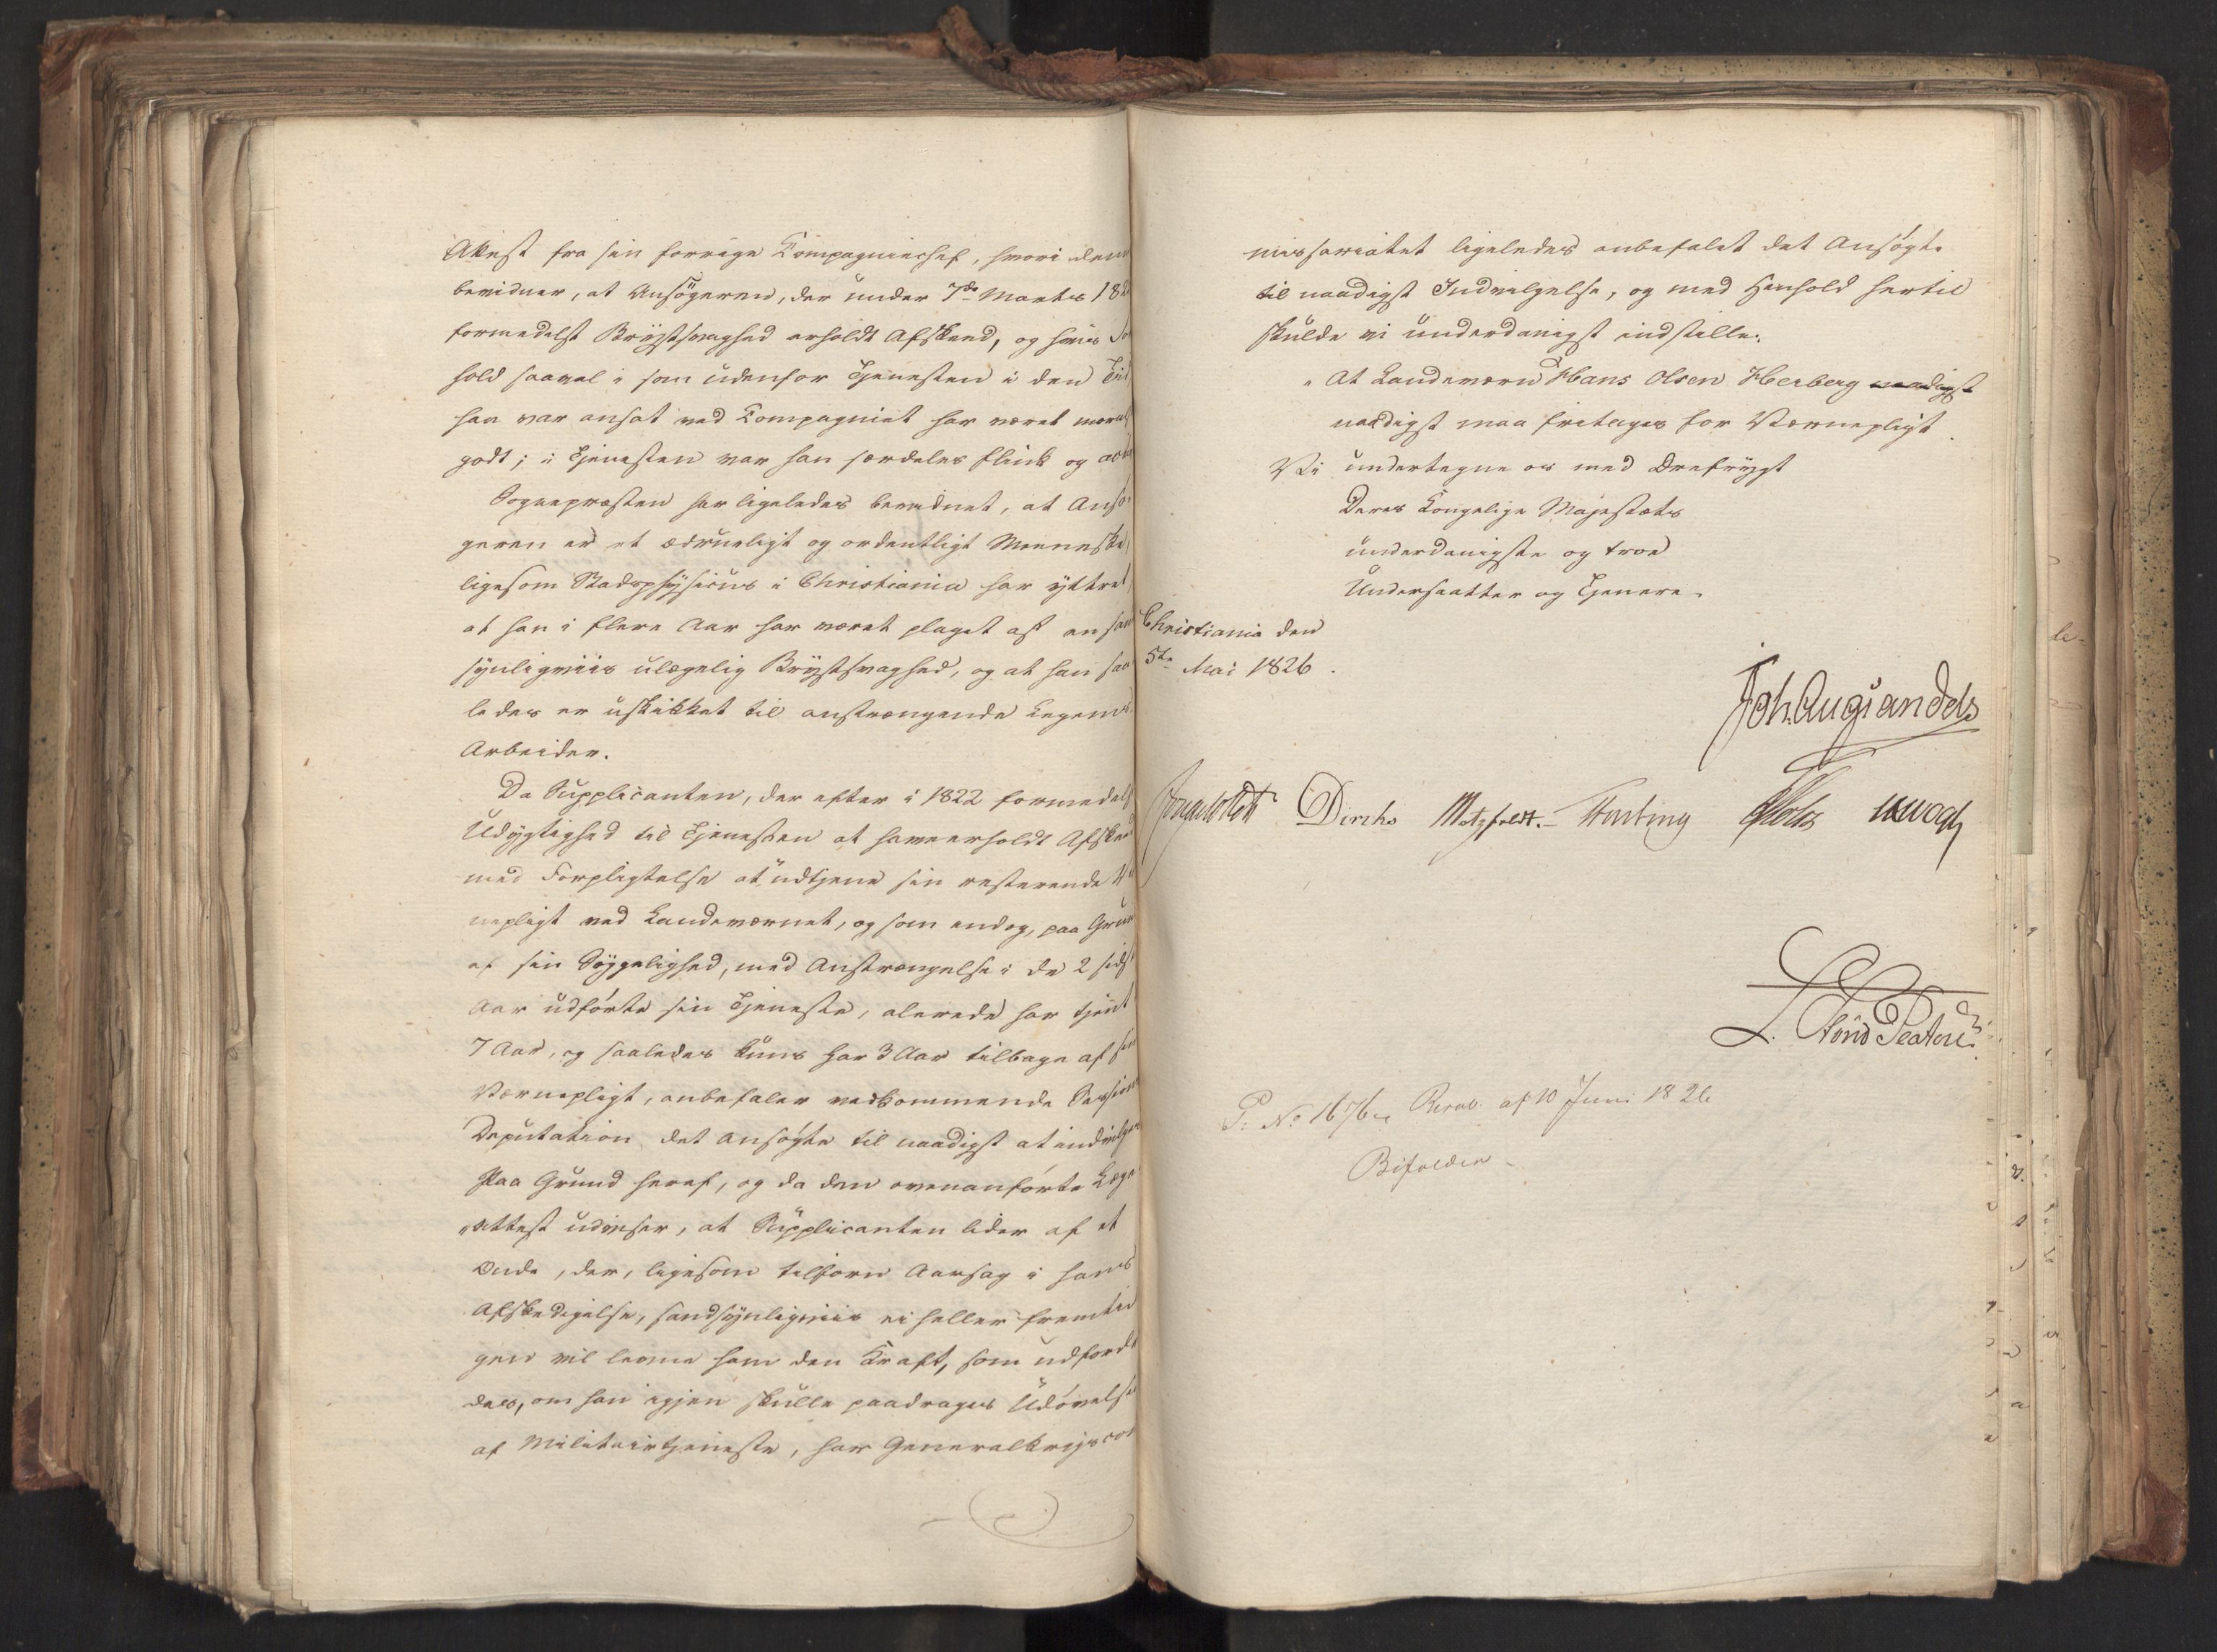 Attest fra sin forrige Compagniechef, hvori denne
bevidner, at Ansögeren, der under 7de Marts 182
formedelst Brystsvaghed erholdt Afskeed, og hans For
hold saavel i som udenfor Tjenesten i den Tid
han var ansat ved Compagniet har været meget
godt; i Tjenesten var han særdeles flink og
Sognepræsten har ligeledes bevidnet, at Ansö-
geren er et ædrueligt og ordentligt Menneske,
ligesom Stadsphysicus i Christiania har yttret,
at han i flere Aar har været plaget af en sand
synligviis ulægelig Brystsvaghed, og at han saa
ledes er uskikket til anstrængende Legems
Arbeider.
Da Supplicanten, der efter i 1822 formedelst
Udygtighed til Tjenesten at have erholdt Afskeed
med Forpligtelse at udtjene sin resterende Vær
nepligt ved Landeværnet, og som endog, paa Grund
af sin Sygelighed, med Anstrængelse i de 2 sidste
Aar udförte sin Tjeneste, alerede har tjent
7 Aar, og saaledes kuns har 3 Aar tilbage af sin
Værnepligt, anbefaler vedkommende Sessions
Deputation det Ansögte til naadigst at indvilges
Paa Grund heraf, og da den ovenanförte Læge-
attest udviser, at Supplicanten lider af et
Onde, der, ligesom tilforn Aarsag i hans
Afskedigelse, sandsynligviis ei heller fremtid
gen vil levne ham den Kraft, som udfordre
des, om han igjen skulle paadrages Udövelse
af Militairtjeneste, har Generalkrigscom
missariatet ligeledes anbefalet det Ansögte
til naadigst Indvilgelse, og med Henhold hertil
skulde vi underdanigst indstille:
" At Landeværn Hans Olsen Herberg naadigst
naadigst maa fritages for Værnepligt.
Vi undertegne os med Ærefrygt
Deres Kongelige Majestæts
underdanigste og troe
Undersaatter og Tjenere.
Christiania den
5te Mai 1826.
Joh. Aug. Sandels
Diriks Motzfeldt. Holst Krogh
P: No 1676 Resol. af 10 Juni 1826
Bifalden